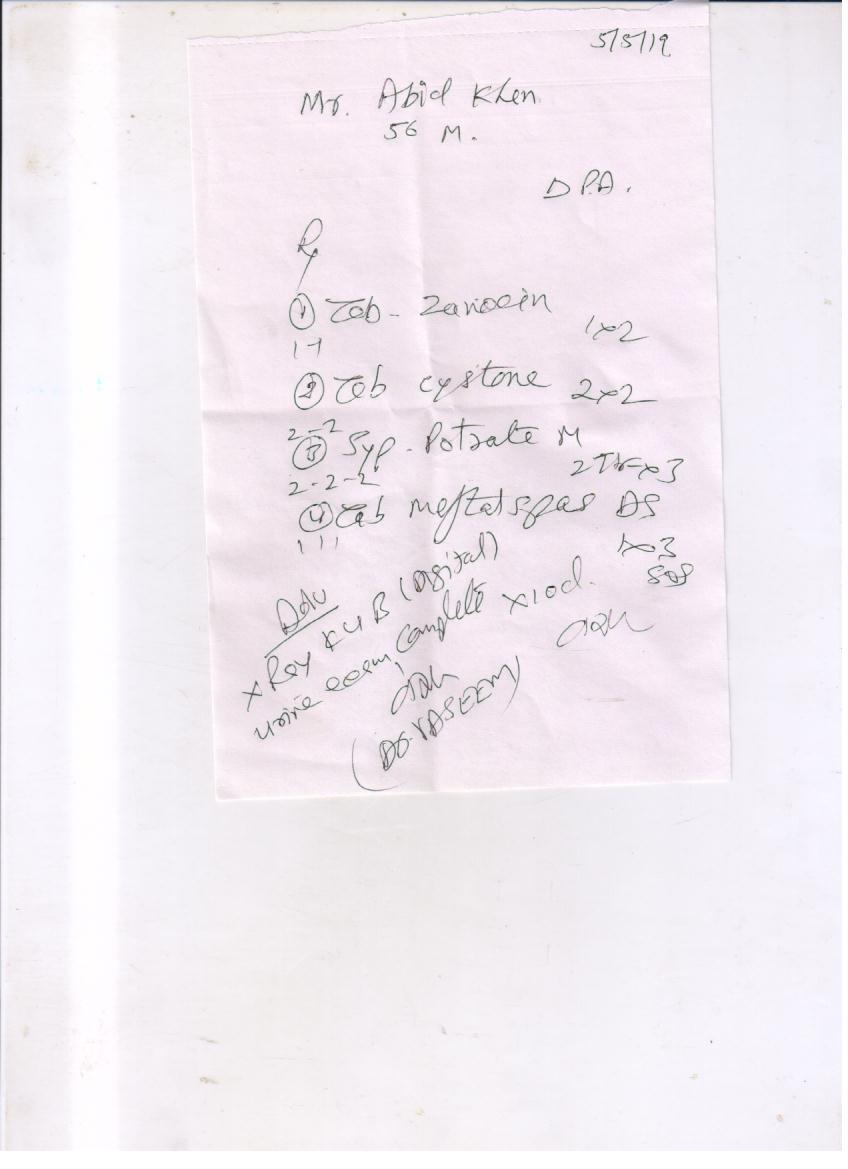 5/5/19
Mr. Abid Khen
56 M.
D P.A.
Rx
① Tab- Zanocin
1x2
1-1
② Tab cystone 2x2
2-2
③ Syp. Potrate M
2 x3
2-2-2
④ Tab Meftalspas DS
1x3
1 1 1
SOS
Adv
x Ray KUB (Digital)
urine exam, complete x10d.
(Dr. YASEEM)